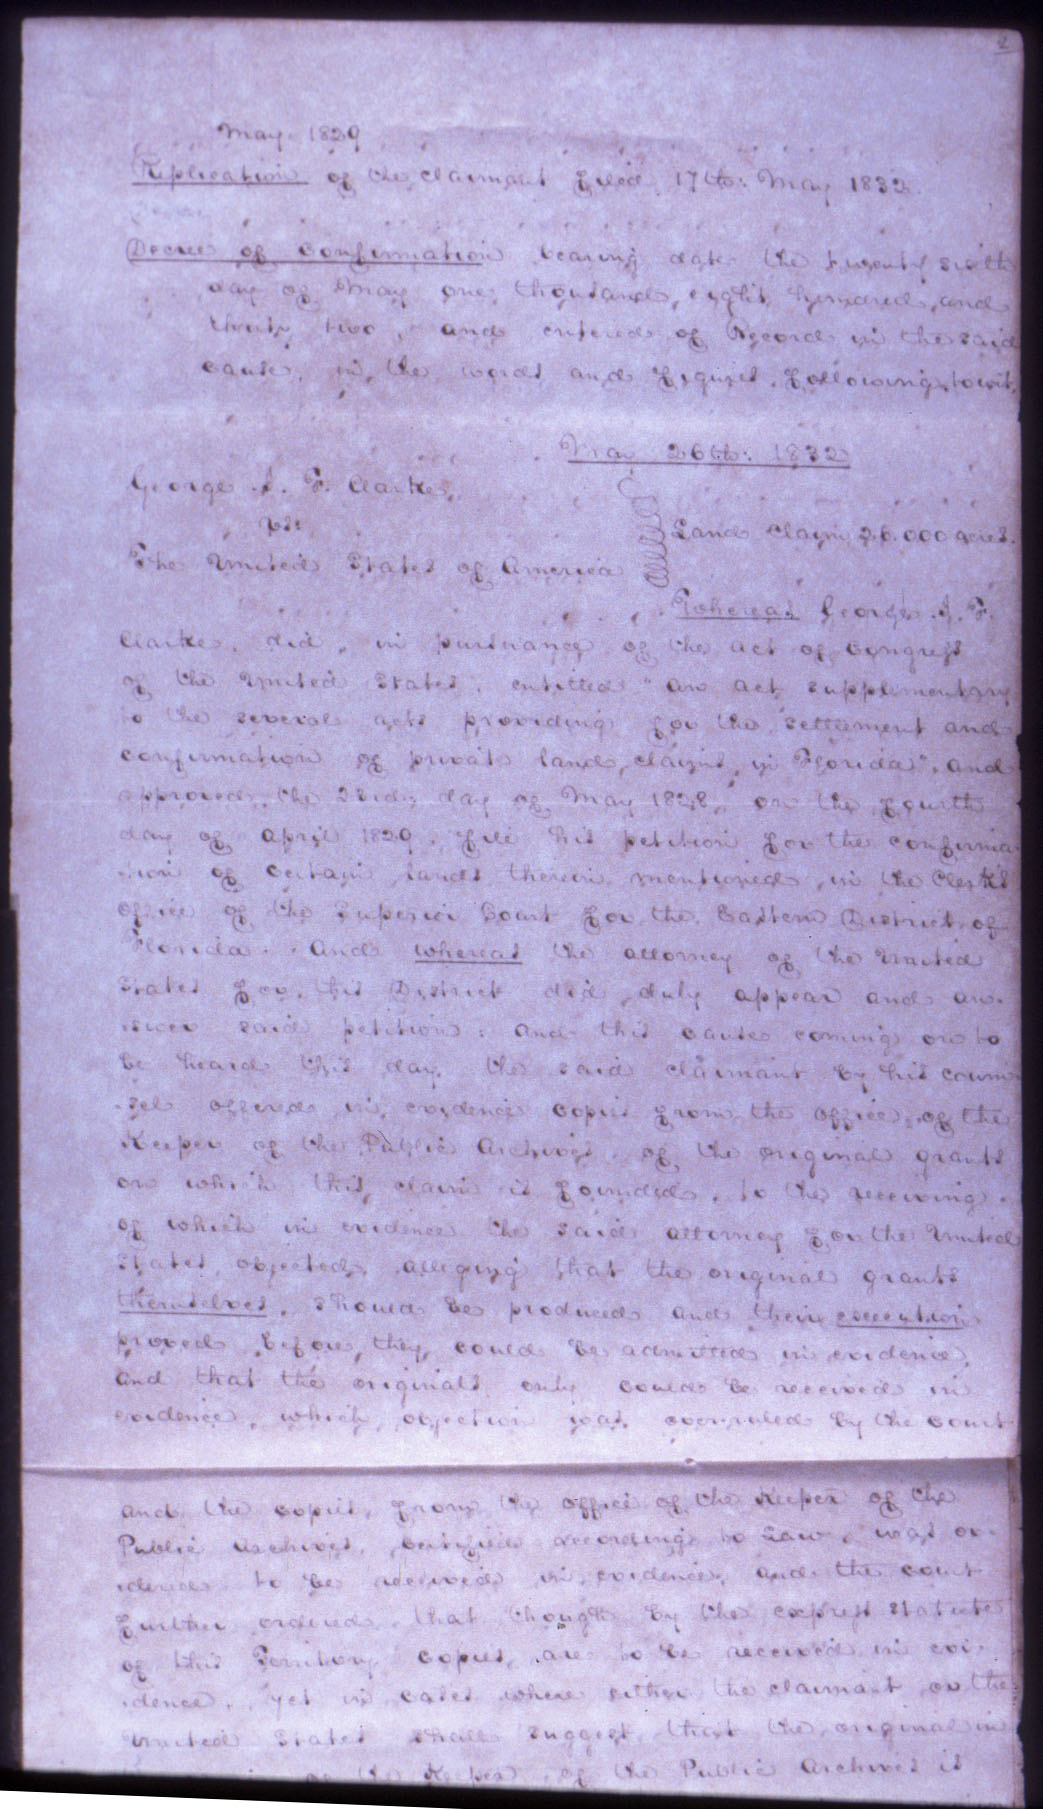 2
May 1829
Replication of the claimant filed 17th: May 1832.
Decree of Confirmation bearing date the twenty sixth
day of May one thousand, eight hundred, and
thirty two, and entered of Record in the said
cause, in the words and figures following, towit,
May 26th: 1832
George J. F. Clarke,
vs:
Land Claim 26.000 acres.
The United States of America
Whereas George J. F.
Clarke, did, in pursuance of the act of Congress
of the United States, entitled "an act supplementary
to the several acts providing for the settlement and
confirmation of private land claims in Florida", and
approved the 23rd: day of May 1828, on the fourth
day of April 1829, file his petition for the confirma
tion of certain lands therein mentioned, in the Clerk's
office of the Superior Court for the Eastern District of
Florida. And whereas the attorney of the United
States for this District did duly appear and an-
swer said petition: and this cause coming on to
be heard this day, the said claimant by his coun
sel offered in evidence copies from the office of the
Keeper of the Public Archives, of the original grants
on which this claim is founded, to the receiving
of which in evidence the said attorney for the United
States objected, alleging that the original grants
themselves, should be produced and their execution
proved before they could be admitted in evidence,
and that the originals only could be received in
evidence, which objection was overruled by the Court
and the copies from the office of the Keeper of the
Public Archives, certified according to Law, was or-
dered to be received in evidence, and the court
further ordered, that though by the express statute
of this Territory copies are to be received in evi-
dence, yet in cases where either the claimant or the
United States shall suggest, that the original in
of the Keeper of the Public Archives is